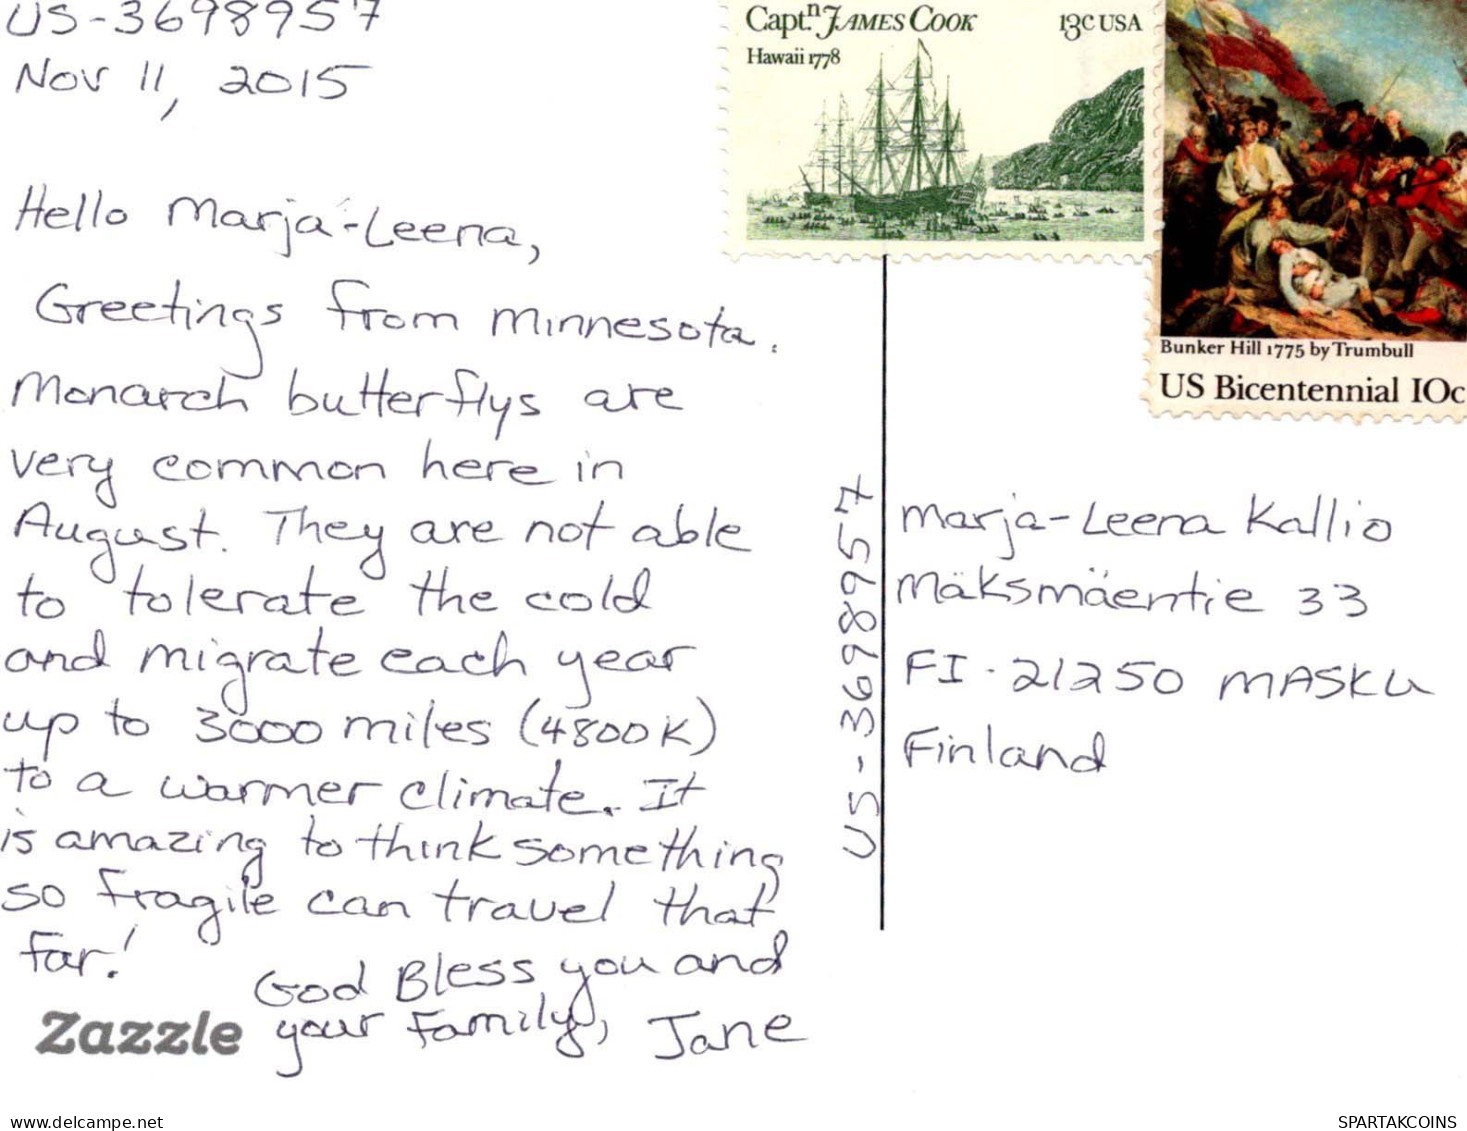 US-3698957
Nov 11, 2015
Hello Marja-Leena,
Greetings from Minnesota.
Monarch butterflys are
very common here in
August. They are not able
to tolerate the cold
and migrate each year
up to 3000 miles (4800K)
to a warmer climate. It
is amazing to think something
so fragile can travel that
far!
God Bless you and
your family, Jane
Zazzle
Capt.n JAMES COOK 13c USA
Hawaii 1778
Bunker Hill 1775 by Trumbull
US Bicentennial 10c
US-3698957
Marja-Leena Kallio
Mäksmäentie 33
FI-21250 MASKU
Finland
www.delcampe.net
SPARTAKCOINS